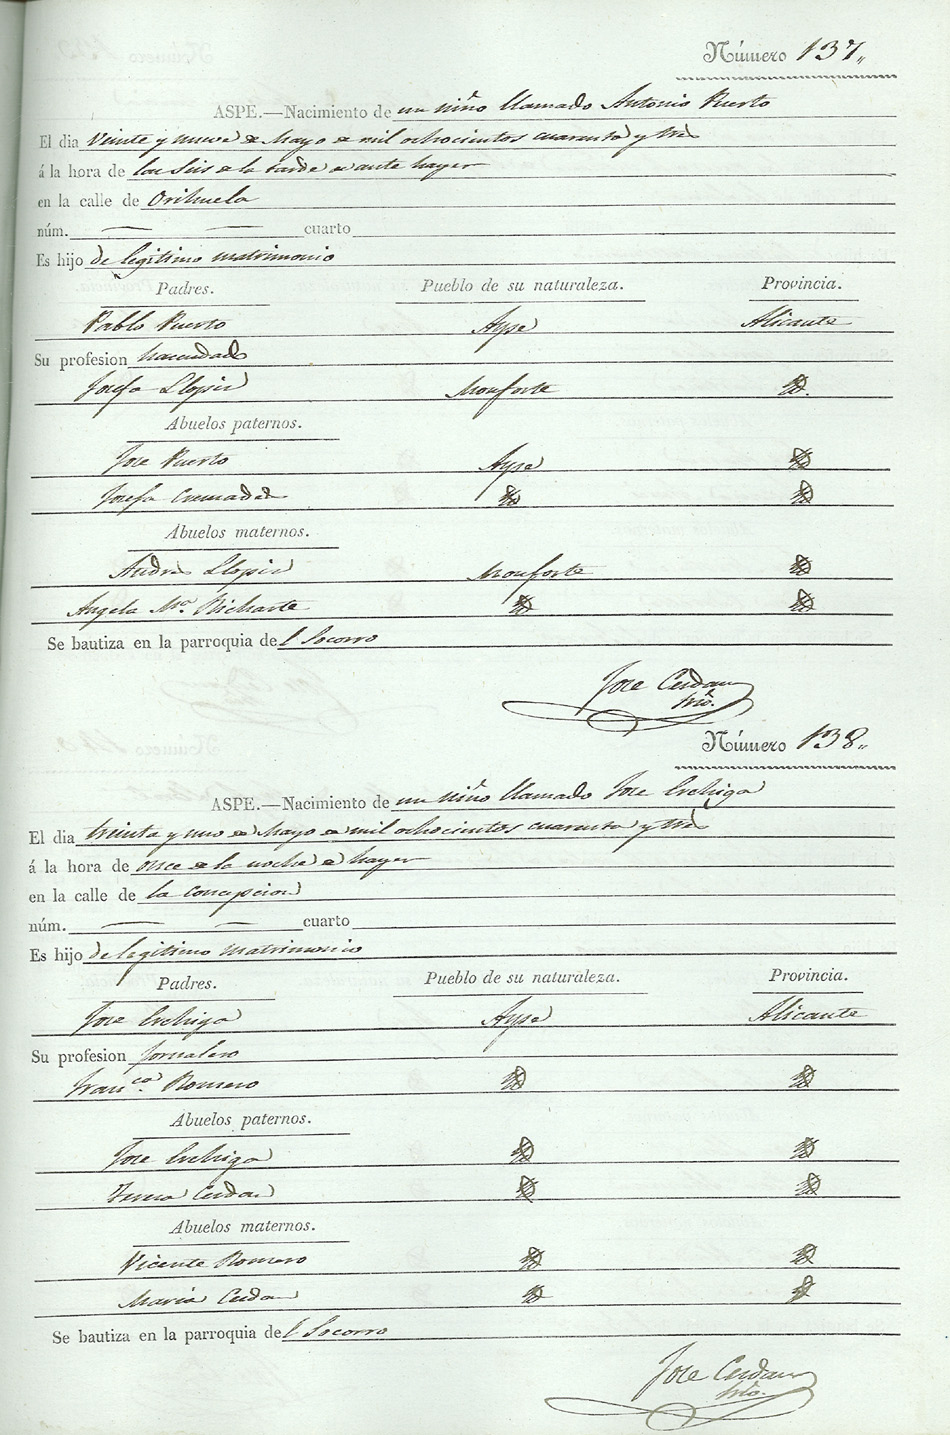 Número 137,,
ASPE.—Nacimiento de un niño llamado Antonio Puerto
El dia veinte y nueve de Mayo de mil ochocientos cuarenta y tres
á la hora de las seis de la tarde de ante hayer
en la calle de Orihuela
núm. — — cuarto
Es hijo de legitimo matrimonio
Padres. Pueblo de su naturaleza. Provincia.
Pablo Puerto Aspe Alicante
Su profesion hacendado
Josefa Llopis Monforte Yd.
Abuelos paternos.
Jose Puerto Aspe Yd
Josefa Cremades Yd Yd
Abuelos maternos.
Andres Llopis Monforte Yd
Angela Mª. Richarte Yd Yd
Se bautiza en la parroquia del Socorro
Jose Cerdan
Srio.
Número 138,,
ASPE.—Nacimiento de un niño llamado Jose
El dia treinta y uno de Mayo de mil ochocientos cuarenta y tres
á la hora de once de la noche de hayer
en la calle de la concepcion
núm. — — cuarto
Es hijo de legitimo matrimonio
Padres. Pueblo de su naturaleza. Provincia.
Jose Aspe Alicante
Su profesion Jornalero
Franca. Romero Yd Yd
Abuelos paternos.
Jose Yd Yd
Teresa Cerdan Yd Yd
Abuelos maternos.
Vicente Romero Yd Yd
Maria Cerdan Yd Yd
Se bautiza en la parroquia del Socorro
Jose Cerdan
Srio.